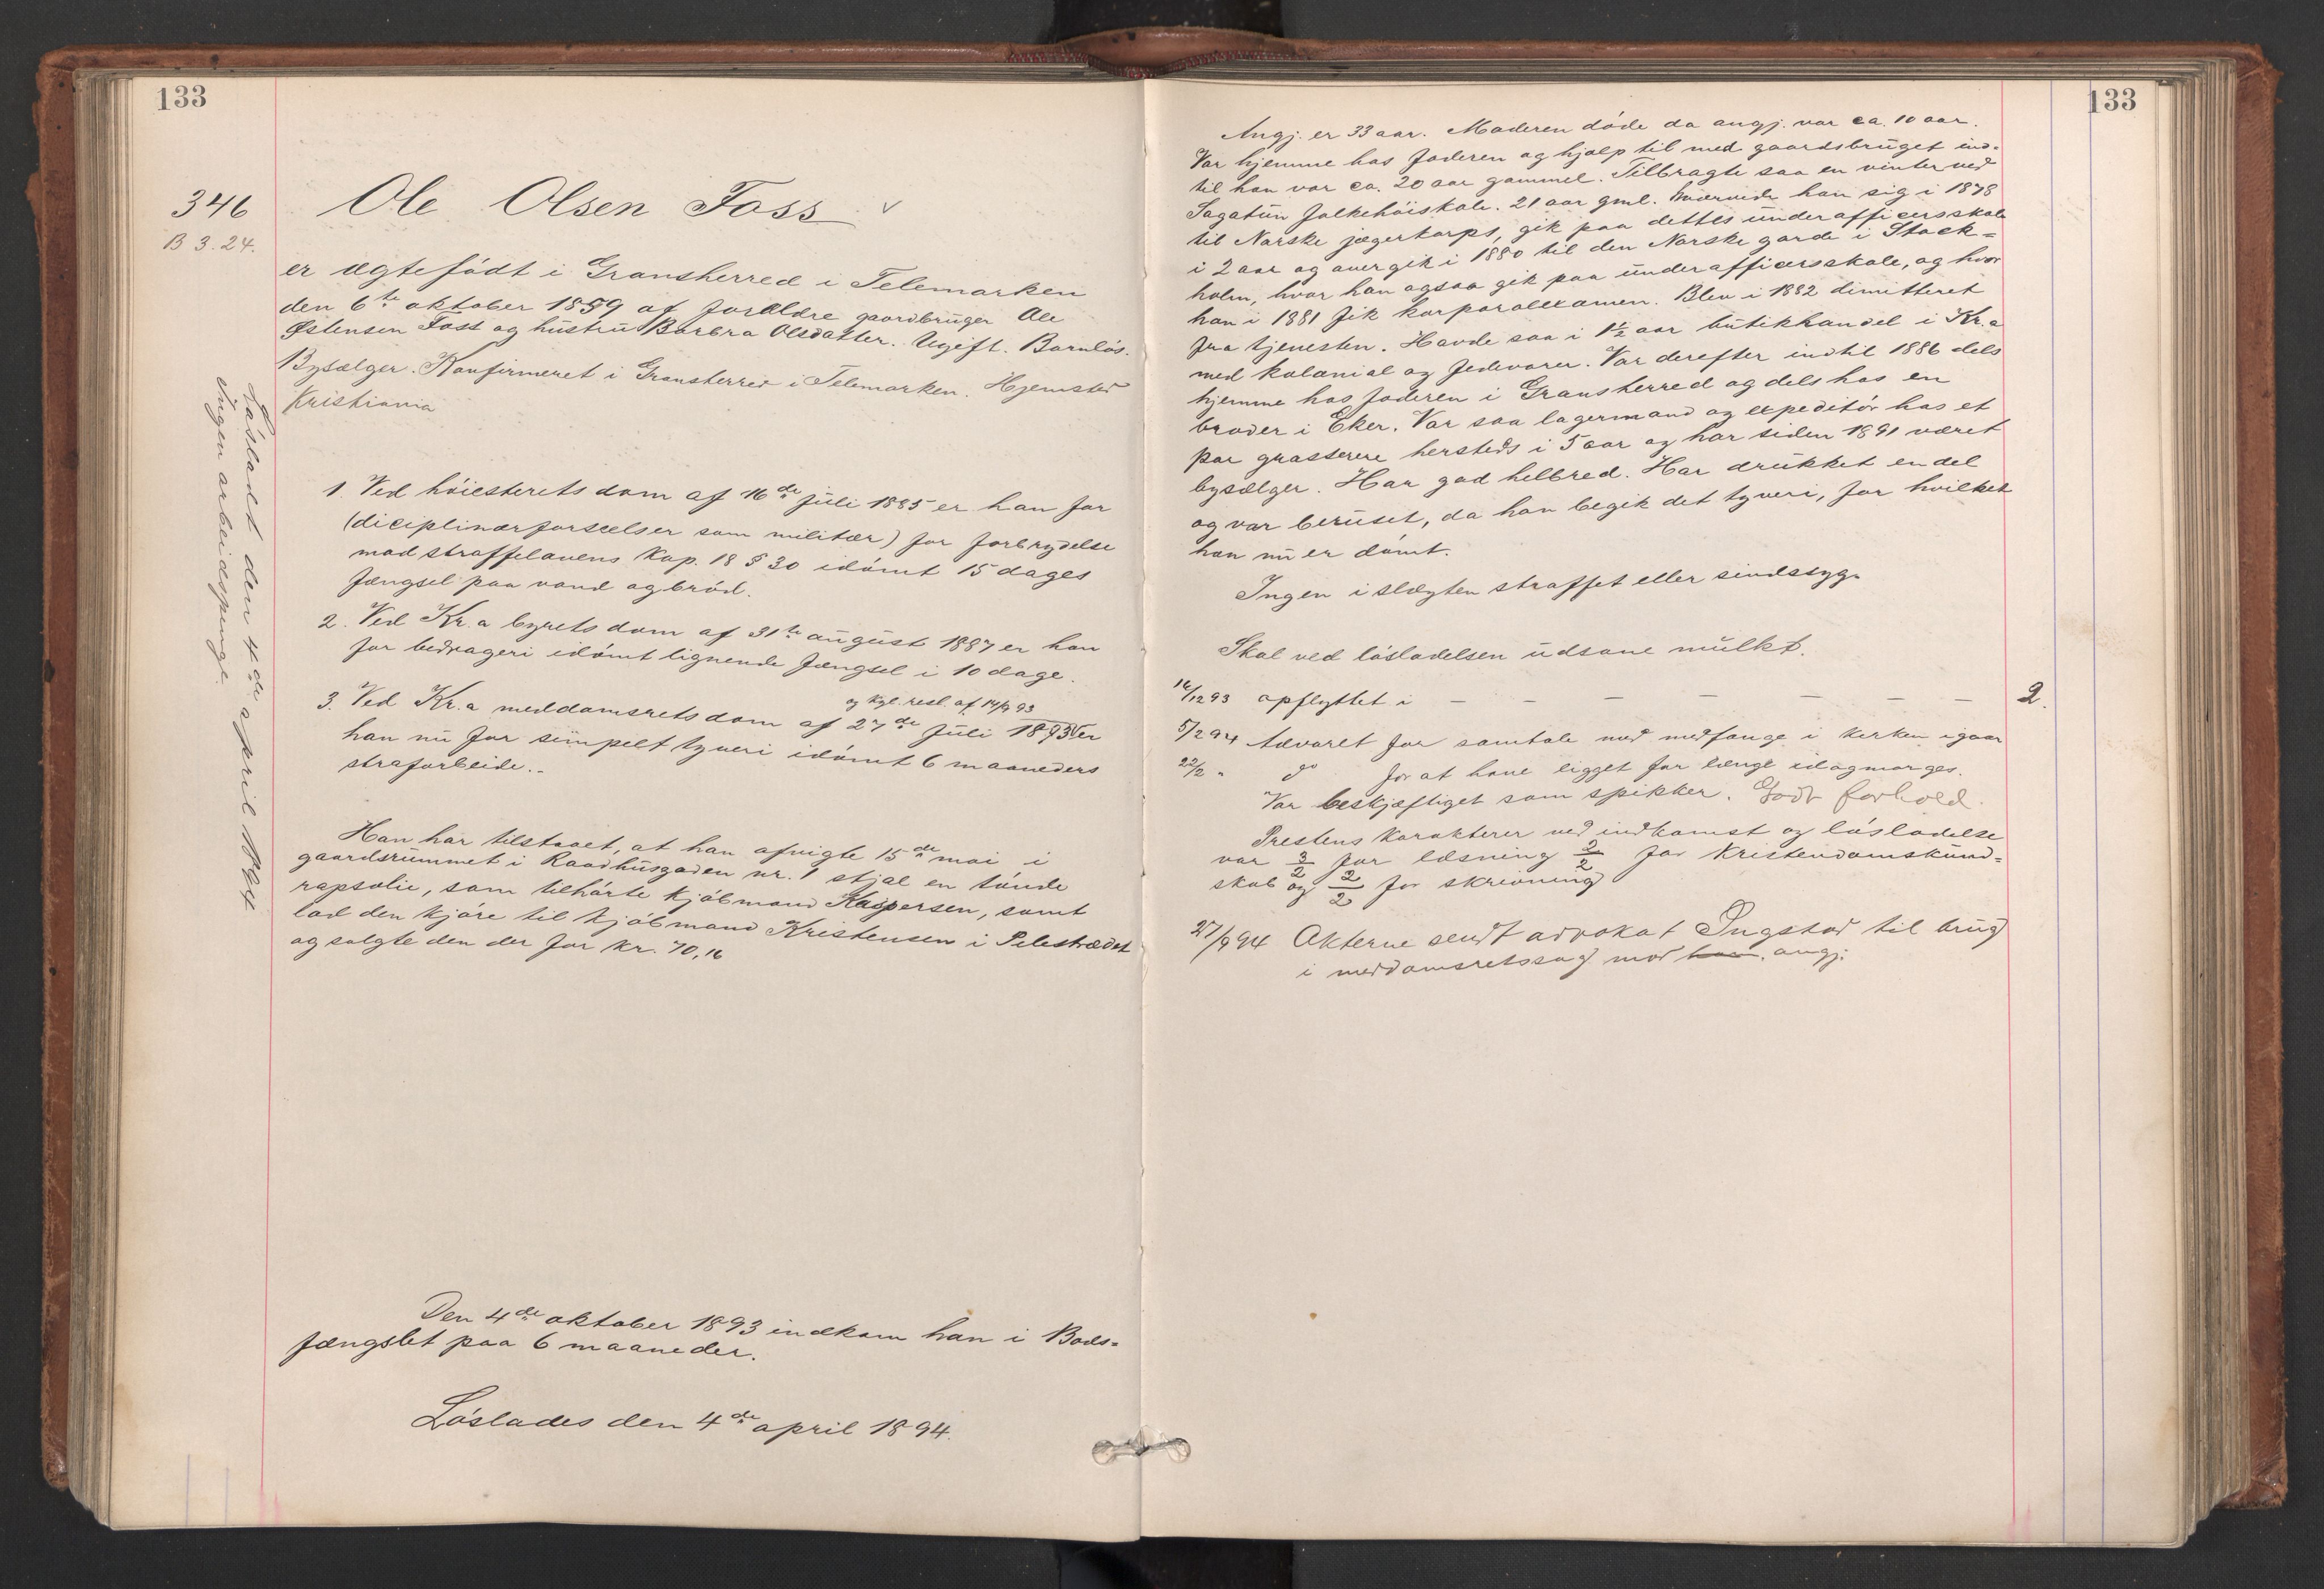 133
346
B 3.24.
Ole Olsen Foss
er ægtefödt i Gransherred i Telemarken
den 6te oktober 1859 af forældre gaardbruger Ole
Østensen Foss og hustru Barbra Olsdatter. Ugift. Barnlös.
Bysælger. Konfirmeret i Gransherred i Telemarken. Hjemsted
Kristiania
Lösladt den 4de april 1894
Ingen arbeidspenge.
1 Ved höiesterets dom af 16de juli 1885 er han for
(diciplinærforseelser som militær) for forbrydelse
mod straffelovens Kap. 18 § 30 idömt 15 dages
fængsel paa vand og bröd.
2. Ved Kr.a byrets dom af 31te august 1887 er han
for bedrageri idömt lignende fængsel i 10 dage.
og kgl. resl. af 14/9 93
3. Ved Kr.a meddomsrets dom af 27de juli 1893 er
han nu for simpelt tyveri idömt 6 maaneders
strafarbeide..
Han har tilstaaet, at han afvigte 15de mai i
gaardsrummet i Raadhusgaden nr. 1 stjal en tönde
rapsolie, som tilhörte kjöbmand Kaspersen, samt
lod den kjöre til kjöbmand Kristensen i Pilestrædet
og solgte den der for kr. 70,16
Den 4de oktober 1893 indkom han i Bods=
fængslet paa 6 maaneder.
Löslades den 4de april 1894.
133
Angj. er 33 aar. Moderen döde da angj. var ca. 10 aar.
Var hjemme hos faderen og hjalp til med gaardsbruget ind=
til han var ca. 20 aar gammel. Tilbragte saa en vinter ved
Sagatun folkehöiskole. 21 aar gml. hværvede han sig i 1878
til Norske jægerkorps, gik paa dettes underofficersskole
i 2 aar og overgik i 1880 til den Norske garde i Stock=
holm, hvor han ogsaa gik paa underofficersskole, og hvor
han i 1881 fik korporalexamen. Blev i 1882 dimitteret
fra tjenesten. Havde saa i 1½ aar butikhandel i Kr.a
med kolonial og fedevarer. Var derefter indtil 1886 dels
hjemme hos faderen i Gransherred og dels hos en
broder i Eker. Var saa lagermand og expeditör hos et
par grosserere hersteds i 5 aar og har siden 1891 været
bysælger. Har god helbred. Har drukket en del
og var beruset, da han begik det tyveri, for hvilket
han nu er dömt.
Ingen i slægten straffet eller sindssyg.
Skal ved lösladelsen udsone mulkt.
16/12 93 opflyttet i — — — — — — 2.
5/2 94 Advaret for samtale med medfange i kirken igaar
22/2 " do for at have ligget for længe idagmorges.
Var beskjæftiget som spikker. Godt forhold.
Prestens karakterer ved indkomst og lösladelse
var 3/2 for læsning 2/2 for kristendomskund=
skab og 2/2 for skrivning
27/9 94 Akterne sendt advokat Ingstad til brug
i meddomsretssag mod angj.